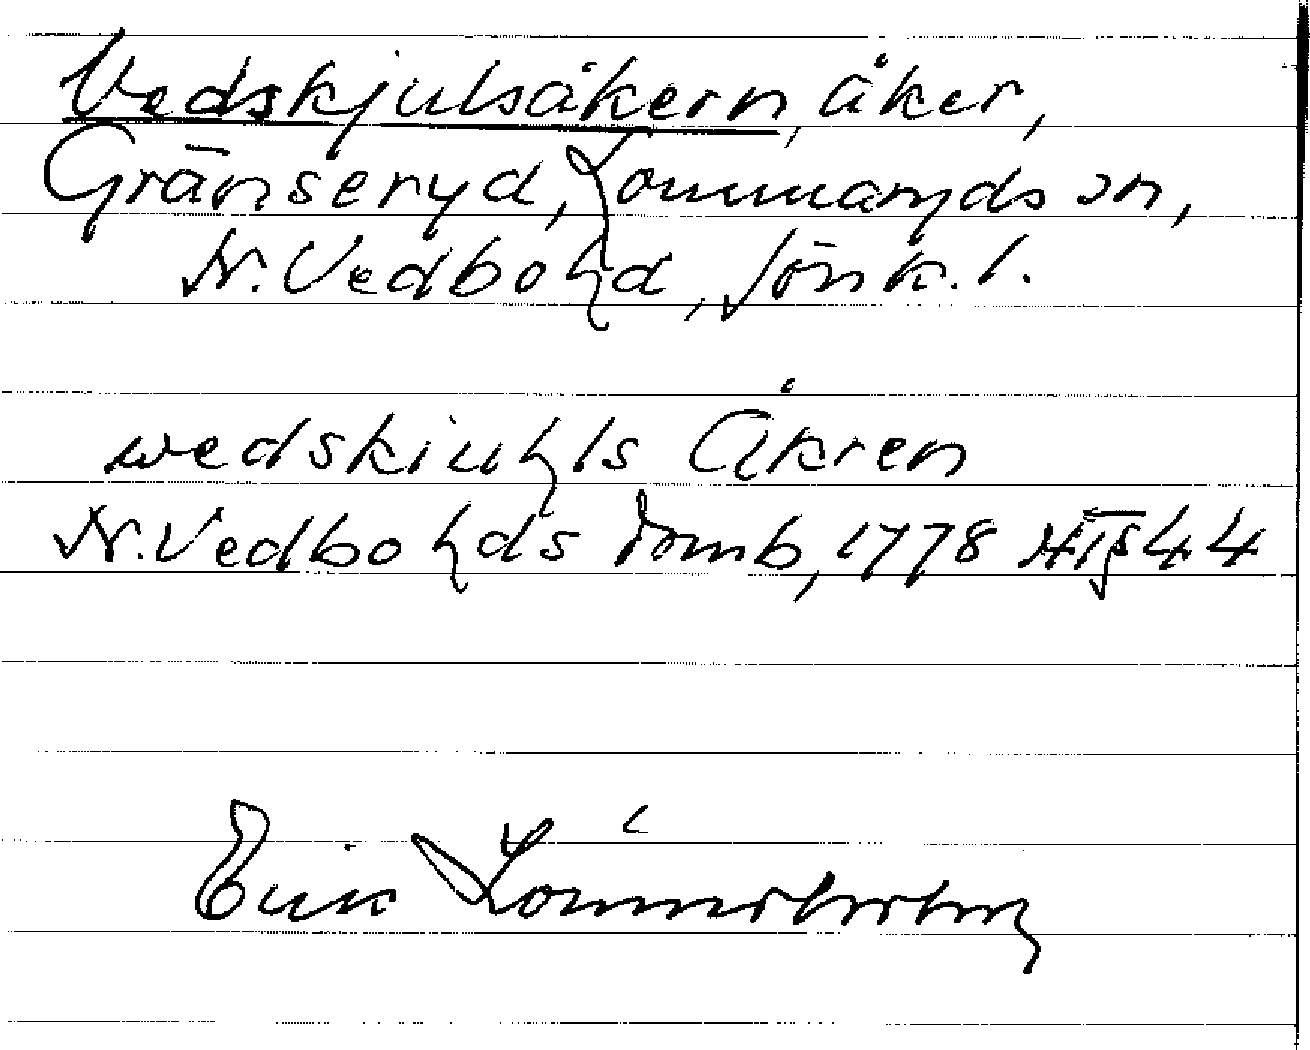 Vedskjulsåkern, åker,
Gränseryd, Lommaryds sn,
N. Vedbo hd, Jönk. l.
wedskiuhls Åkren
N. Vedbo hds domb, 1778 HT § 44
Erik